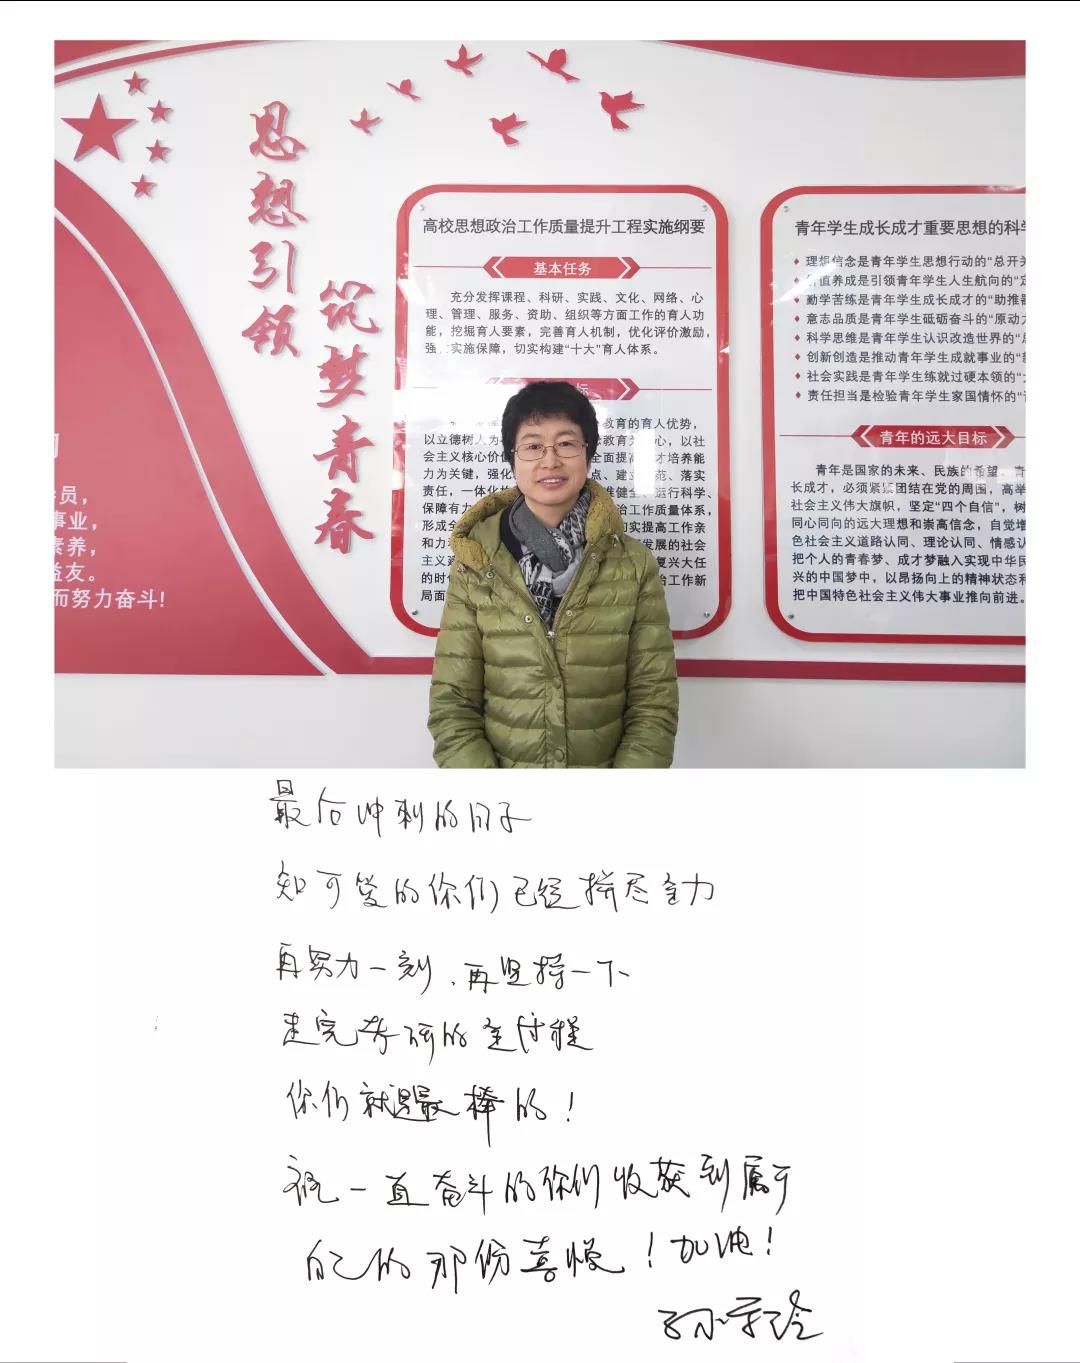 思想引领
筑梦青春
员，
事业，
素养，
益友。
而努力奋斗!
高校思想政治工作质量提升工程实施纲要
基本任务
充分发挥课程、科研、实践、文化、网络、心
理、管理、服务、资助、组织等方面工作的育人功
能，挖掘育人要素，完善育人机制，优化评价激励，
强 实施保障，切实构建“十大”育人体系。
标
教育的育人优势，
以立德树人为 教育 心，以社
会主义核心价 全面提高 才培养能
力为关键，强化 点、建立 范、落实
责任，一体化 健全、运行科学、
保障有力 治工作质量体系，
形成全 切实提高工作亲
和力 发展的社会
主义 复兴大任
的时 治工作新
局面
青年学生成长成才重要思想的科学
理想信念是青年学生思想行动的“总开关
价值养成是引领青年学生人生航向的“定
勤学苦练是青年学生成长成才的“助推器
意志品质是青年学生砥砺奋斗的“原动力
科学思维是青年学生认识改造世界的“总
创新创造是推动青年学生成就事业的“新
社会实践是青年学生练就过硬本领的“大
责任担当是检验青年学生家国情怀的“试
青年的远大目标
青年是国家的未来、民族的希望、青
长成才，必须紧紧团结在党的周围，高举
社会主义伟大旗帜，坚定“四个自信”，树
同心同向的远大理想和崇高信念，自觉增
色社会主义道路认同、理论认同、情感认
把个人的青春梦、成才梦融入实现中华民
兴的中国梦中，以昂扬向上的精神状态和
把中国特色社会主义伟大事业推向前进。
最后冲刺的日子
知可爱的你们已经拼尽全力
再努力一刻，再坚持一下
走完考研的全过程
你们就是最棒的！
祝一直奋斗的你们收获到属于
自己的那份喜悦！加油！
孙